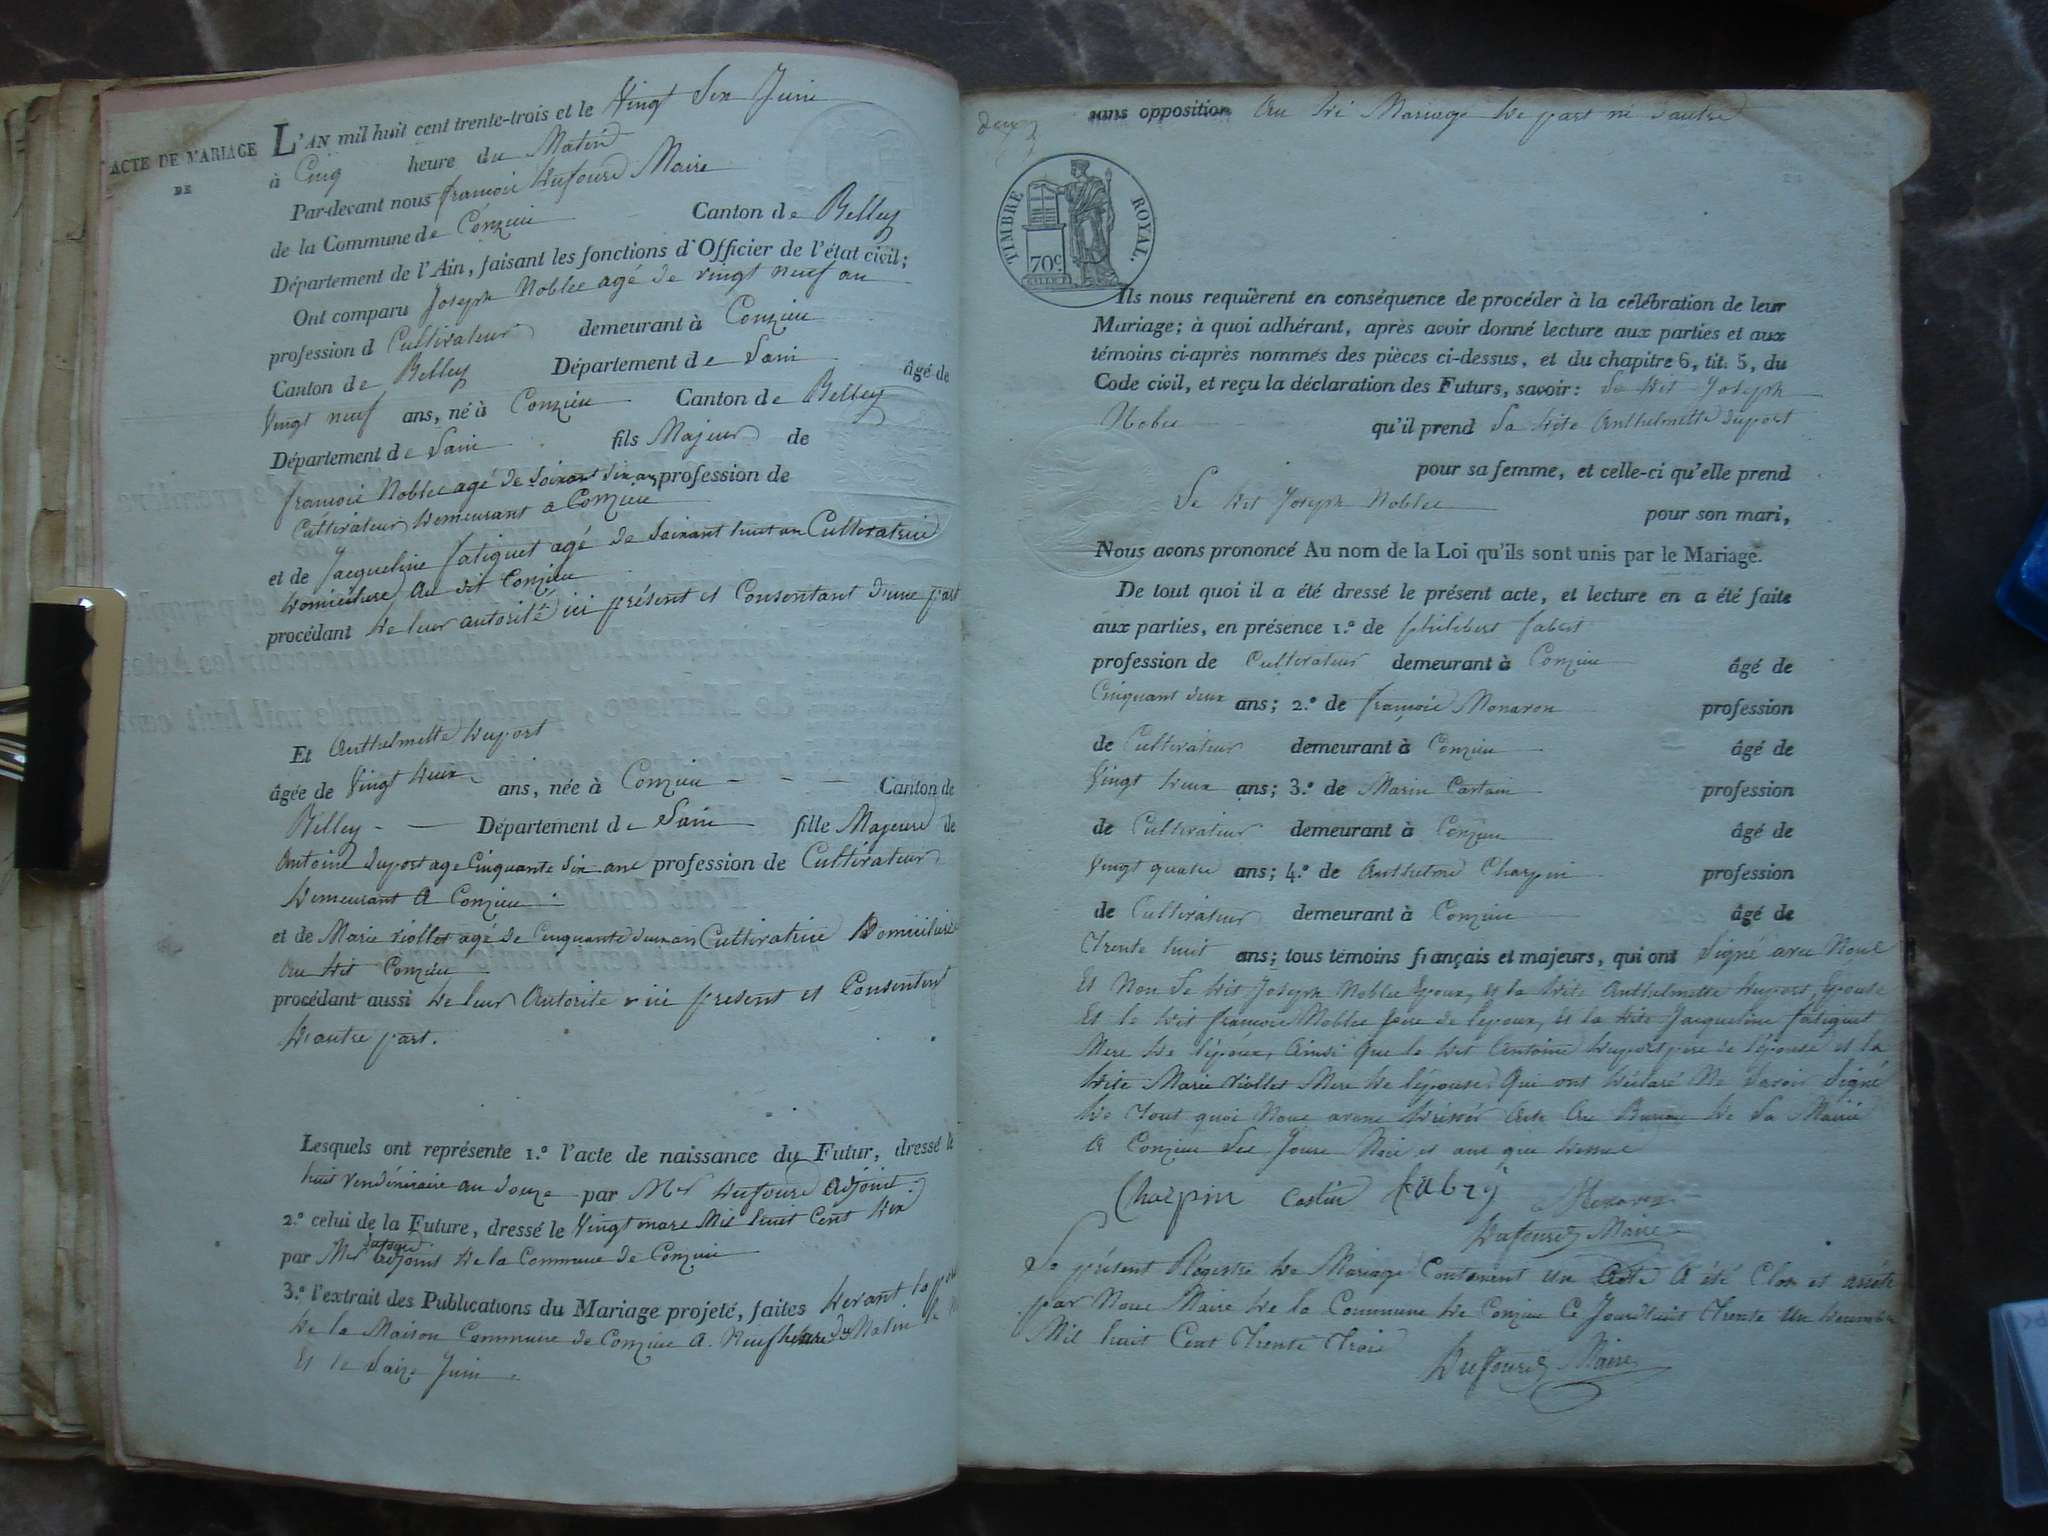 ACTE DE MARIAGE
DE
L'AN mil huit cent trente-trois et le Vingt Six Juin
à Cinq heure du Matin
Par-devant nous françois Dufourd Maire
de la Commune de Conzieu Canton de Belley
Département de l'Ain, faisant les fonctions d'Officier de l'état civil;
Ont comparu Joseph Noblee agé de vingt neuf an
profession d Cultivateur demeurant à Conzieu
Canton de Belley Département de Lain âgé de
Vingt neuf ans, né à Conzieu Canton de Belley
Département de Lain fils Majeur de
françois Noblee agé de Soixant Six an profession de
Cultivateur Demeurant a Conzieu
et de Jacqueline fatiguet agé de Soixant huit an Cultivatrice
Domiciliere Au dit Conzieu
procédant De leur autorité ici présent et Consentant D'une part
Et Anthelmette Duport
âgée de Vingt Deux ans, née à Conzieu Canton de
Belley Département de Lain fille Majeure de
Antoine Duport age Cinquante Six ans profession de Cultivateur
Demeurant A Conzieu
et de Marie Viollet agé de Cinquante deux ans Cultivatrice Domiciliere
Au Dit Conzieu
procédant aussi De leur Autorité ici present et Consentent
D'autre part.
Lesquels ont représente 1.º l'acte de naissance du Futur, dressé le
huit Vendémiaire an douze par Mr Dufourd Adjoint.
2.º celui de la Future, dressé le Vingt mars Mil huit Cent Dix
par Mr Dufourd adjoint De la Commune de Conzieu
3.º l'extrait des Publications du Mariage projeté, faites Devant la porte
De la Maison Commune de Conzieu A Neuf heure du Matin le
Et le Saize Juin
deux
sans opposition Au Di Mariage De part ni d'autre
TIMBRE ROYAL.
70c
Ils nous requièrent en conséquence de procéder à la célébration de leur
Mariage; à quoi adhérant, après avoir donné lecture aux parties et aux
témoins ci-après nommés des pièces ci-dessus, et du chapitre 6, tit. 5, du
Code civil, et reçu la déclaration des Futurs, savoir: Le Dit Joseph
Noblee qu'il prend La Dite Anthelmette Duport
pour sa femme, et celle-ci qu'elle prend
Le Dit Joseph Noblee pour son mari,
Nous avons prononcé Au nom de la Loi qu'ils sont unis par le Mariage.
De tout quoi il a été dressé le présent acte, et lecture en a été faite
aux parties, en présence 1.º de philibert fabri
profession de Cultivateur demeurant à Conzieu âgé de
Cinquant deux ans; 2.º de françois Monavon profession
de Cultivateur demeurant à Conzieu âgé de
Vingt Deux ans; 3.º de Marin Cartain profession
de Cultivateur demeurant à Conzieu âgé de
Vingt quatre ans; 4.º de Anthelme Charpin profession
de Cultivateur demeurant à Conzieu âgé de
Trente huit ans; tous témoins français et majeurs, qui ont Signé avec Nous
Et Non Le Dit Joseph Noblee Epoux, Et la Dite Anthelmette Duport, Epouse
Et le Dit françois Noblee père de l'epoux, Et la Dite Jacqueline fatiguet
Mere De l'époux, Ainsi Que le Dit Antoine Duport pere de l'épouse et la
Dite Marie Viollet Mere De l'épouse, Qui ont Déclaré Ne Savoir Signé
De Tout quoi Nous avons Dressér Acte Au Bureau De La Mairie
A Conzieu Les Jours Mois et ans que Dessus
Charpin Castin fabry Monavon
Dufourd Maire
Le présent Régistre De Mariage Contenent Un Acte A été Clos et arrêté
par Nous Maire De la Commune De Conzieu Ce Jourd'huit Trente Un Decembre
Mil huit Cent Trente Trois
Dufourd Maire